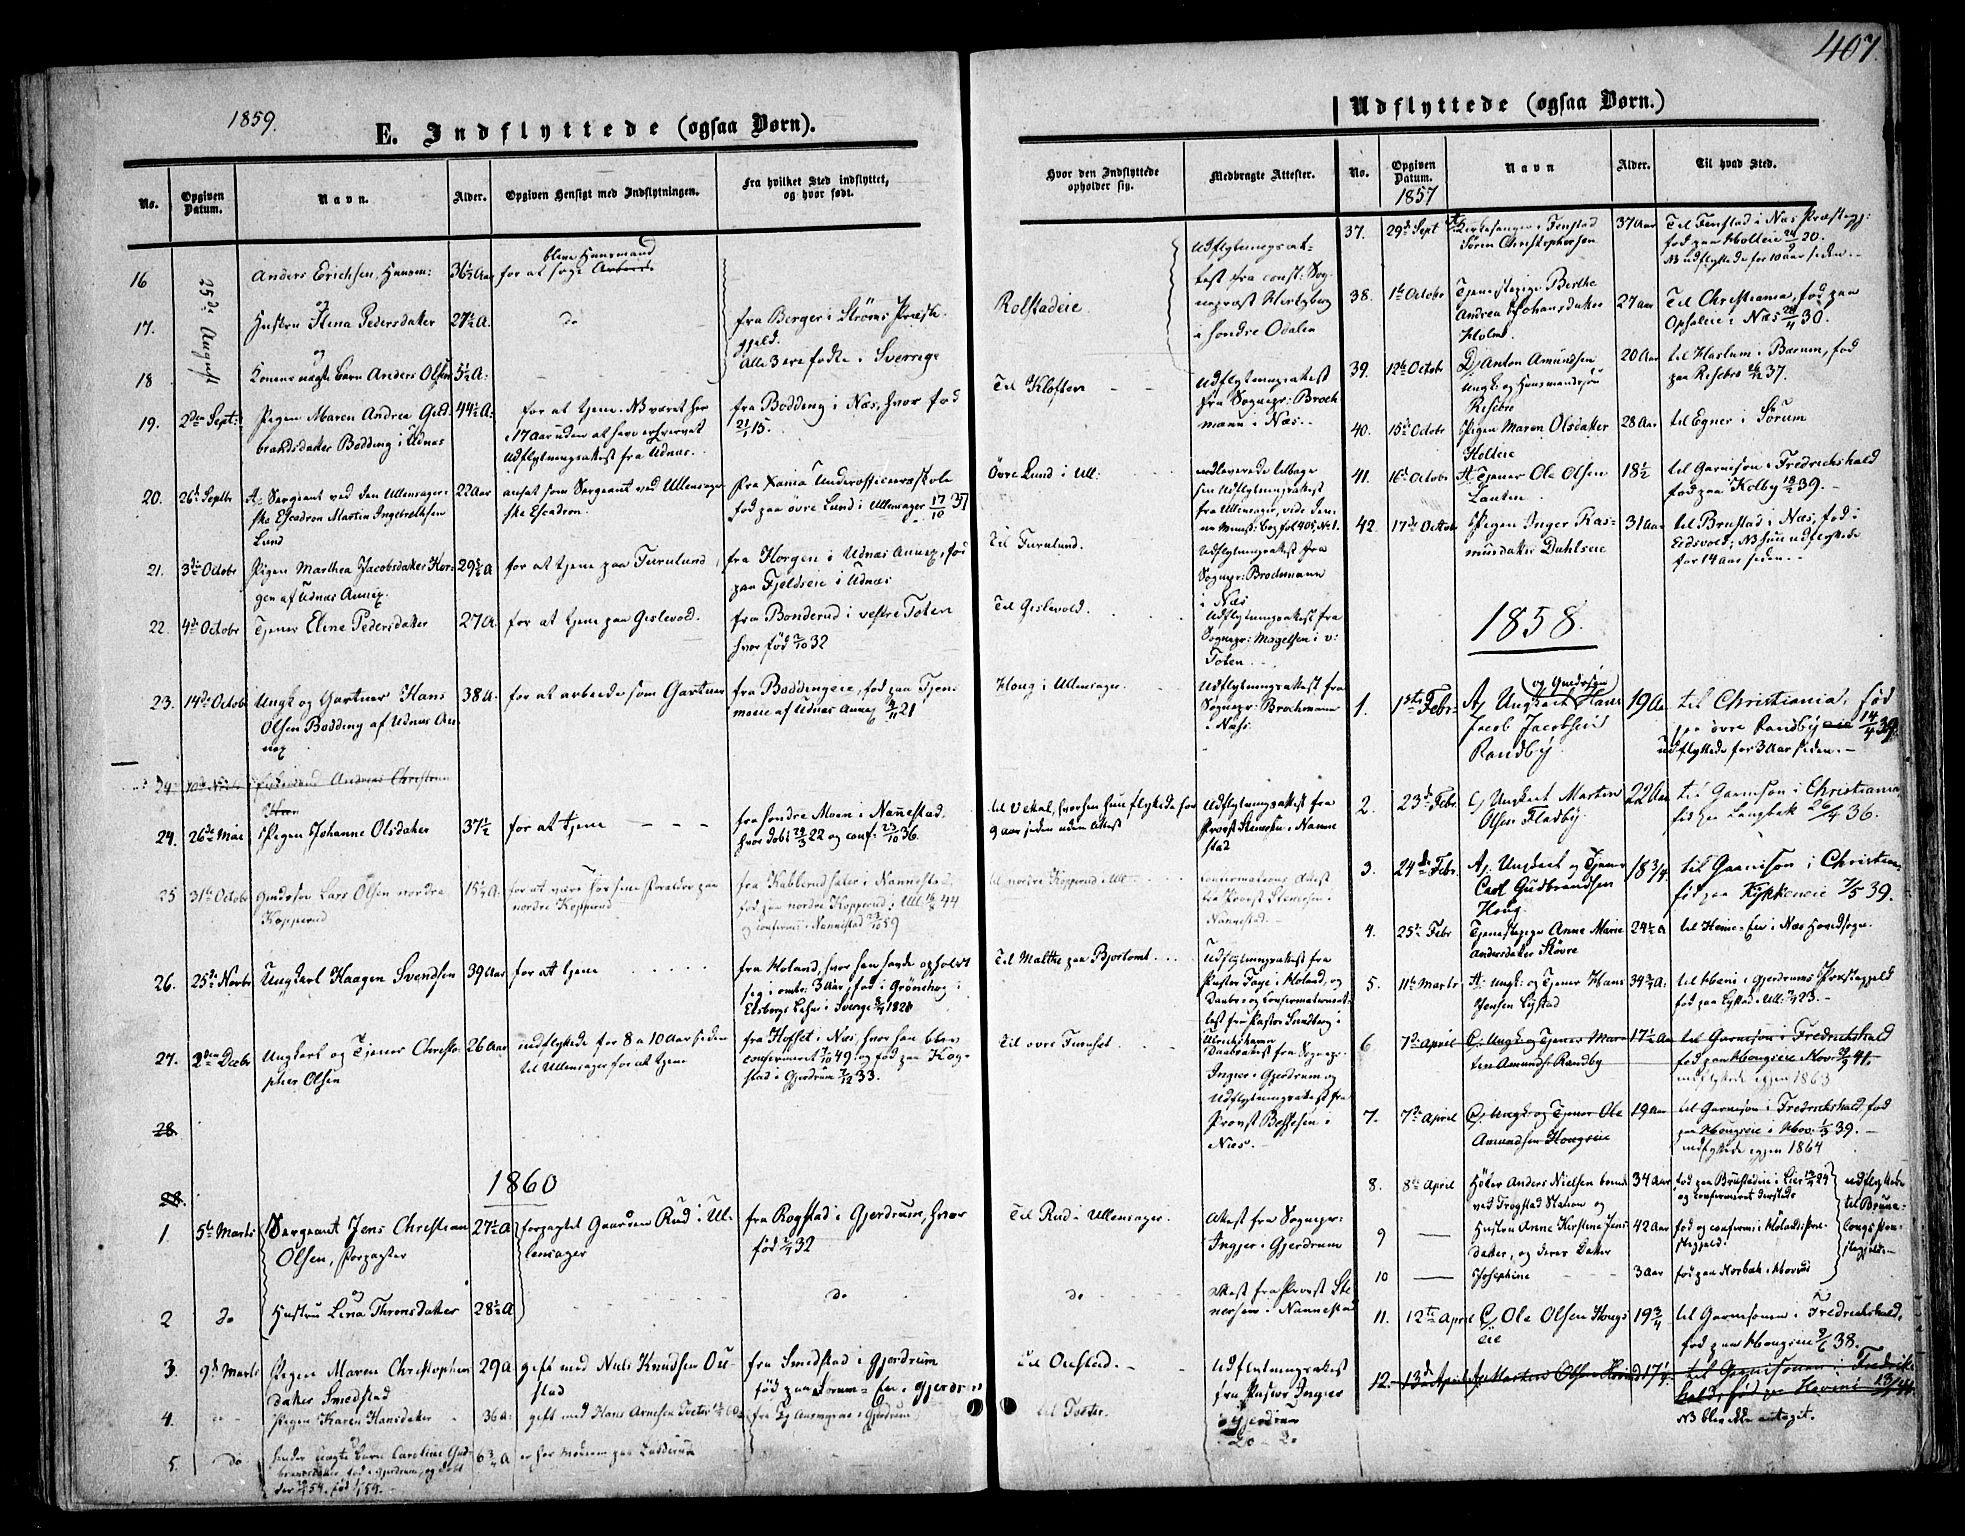 407.
1859.
E. Indflyttede (ogsaa Børn).
No.
Opgiven Datum.
Navn.
Alder.
Opgiven Hensigt med Indflytningen.
Fra hvilket Sted indflyttet, og hvor født.
Hvor den Indflyttede opholder sig.
Medbragte Attester.
16
25de August
Anders Erichsen, Huusm:
36½ Aar
blive Huusmand
for at søge Arbeide
17.
Hustru Stena Pedersdatter
27½ A.
do
fra Berger i Strøms Præste-
gjeld.
Alle 3 ere fødte i Sverrige
Rolstadeie
Udflytningsat-
test fra const: Sog-
nepræst Hertzberg
i Søndre Odalen
18
Konens uægte Barn Anders Olsen
5½ A:
19.
2den Sept:
Pigen Maren Andrea Gud-
brandsdatter Bodding i Udnæs
44½ A:
for at tjene. NB været her
i 17 Aar uden at have erhvervet
Udflytningsattest fra Udnæs.
fra Bodding i Næs, hvor fød
21/1 15.
Til Kløften
Udflytningsattest
fra Sognepr: Broch
mann i Næs.
20.
26de Septbr
A: Sergeant ved den Ullensager-
ske Escadron Martin Ingebrethsen
Lund
22 Aar
ansat som Sergeant ved Ullensager
ske Escadron.
fra Xania Underofficiersskole
fød paa øvre Lund i Ullensager 17/10 37
Övre Lund i Ull:
medleverede tilbage
sin Udflytningsattest
fra Ullensager, vide den-
ne Minist: bog fol 405, No 1.
21.
3die Octobr
Pigen Marthea Jacobsdatter Hor-
gen af Udnæs Annex.
29½ A
for at tjene paa Furulund
fra Horgen i Udnæs Annex, fød
paa Fjeldseie i Udnæs
til Furulund.
Udflytningsattest fra
Sognepr: Brochmann
i Næs
22.
4de Octobr
Tjener Eline Pedersdatter
27 A.
for at tjene paa Gislevold.
fra Bonderud i vestre Toten
hvor fød 2/10 32
Til Gislevold.
Udflytningsattest fra
Sognepr: Magelsen i v:
Toten.
23.
14de Octobr
Ungk og Gartner Hans
Olsen Bodding af Udnæs An-
nex
38 A.
for at arbeide som Gartner
fra Boddingeie, fød paa Tjern
moeie af Udnæs Annex 9/11 21
Houg i Ullensager.
Udflytningsattest fra
Sognepr: Brochmann
i Næs.
24.
Andreas Christian
24.
26de Mai
Pigen Johanne Olsdatter
37½
for at tjene
fra søndre Moen i Nannestad.
hvor døbt 29/3 22 og conf: 23/10 36.
til Vekal, hvorhen hun flyttede for
9 aar siden uden Attest
Udflytningsattest fra
Provst Stenersen i Nanne
stad
25
31te Octobr
Gaardsøn Lars Olsen nordre
Kopperud
15¼ A.
for at være hos sine Forældre paa
nordre Kopperud
fra Kabberud sæter i Nannestad,
fød paa nordre Kopperud i Ull: 16/8 44
og confirm: i Nannestad 23/10 59
til nordre Kopperud i Ull:
Confirmations Attest
fra Provst Stenersen i
Nannestad.
26.
25de Novbr
Ungkarl Haagen Svendsen
39 Aar
for at tjene
fra Høland, hvor han havde opholdt
sig i omtr: 3 Aar, fød i Grönshog i
Elsborgs Lehn i Sverige 8/4 1820
Til Malthe paa Bjortomt.
Udflytningsattest fra
Pastor Faye i Høland, og
Daabs- og Confirmationsat-
test fra Pastor Sundberg i
Ulrichshavn
27.
2den Decbr
Ungkarl og Tjener Christo-
pher Olsen
26 Aar
indflyttede for 8 a 10 Aar siden
til Ullensager for at tjene
fra Hofset i Næs, hvor han blev
confirmeret 7/10 49, og fød paa Kog-
stad i Gjerdrum 7/12 33.
til øvre Furuset.
Daabsattest fra Sognepr.
Ingier i Gjerdrum og
Udflytningsattest fra
Provst Bessesen i
Næs.
28.
1860
28.
1
5te Marts
Sergeant Jens Christian
Olsen, Forpagter
27½ A
forpagtet Gaarden Rud i Ul-
lensager
fra Rogstad i Gjerdrum, hvor
fød 2/7 32
Til Rud i Ullensager.
Attest fra Sognepr:
Ingier i Gjerdrum
2
do
Hustru Lina Thronsdatter
28½ A
do
do
Attest fra Provst Ste-
nersen i Nannestad
3.
9de Marts
Pigen Maren Christophers
datter Smedstad
29 A
gift med Niels Knudsen Ou-
stad
fra Smedstad i Gjerdrum
fød paa Forum-Eie i Gjerdrum
til Oustad.
Udflytningsattest
fra Pastor Ingier
i Gjerdrum
4.
do
Pigen Karen Hansdatter
36 A.
gift med Hans Arnesen Toeter
i Gjerdrum
til Toeter.
do - do
5.
do
hendes uægte Barn Caroline Gud-
brandsdatter, fød i Gjerdrum, og døbt
der 54. fød 54.
6¾ A
er hos Moderen paa
Udflyttede (ogsaa Børn.)
No.
Opgiven Datum.
1857
Navn
Alder.
Til hvad Sted.
37.
29de Sept
Kirkesanger i Fenstad
Sören Christophersen
37 Aar
Til Fenstad i Næs Præstegj:
fød paa Holteie 24/2 20.
NB udflyttede for 10 aar siden.
38.
1te Octobr
Tjenestepige Berthe
Andrea Johansdatter
Holm
27 aar
Til Christiania, fød paa
Opsaleie i Næs 20/4 30.
39.
12te Octobr
Anton Amundsen
Ungk. og Huusmandssøn
Risebro
20 Aar
til Haslum i Bærum, fød
paa Risebro 16/12 37.
40.
15de Octobr
Pigen Maren Olsdatter
Holteie
28 Aar
til Egner i Sörum
41.
16de Octobr
A Tjener Ole Olsen
Lauten
18½
til Garnison i Fredrichshald
fød paa Kolby 19/2 39.
42.
17de Octobr
Pigen Inger Ras-
musdatter Dahlseie
31 Aar
til Brustad i Næs, fød i
Eidsvold; NB hun udflyttede
for 14 aar siden.
1858.
1.
1ste Febr.
A, Ungkarl og Gaardsøn Hans
Jacob Jacobsen
Randby
19 Aar
til Christiania, fød
paa øvre Randby eie 14/4 39.
udflyttede for 3 Aar siden.
2.
23de Febr.
C, Ungkarl Morten
Olsen Fladby.
22 Aar
til Garnison i Christiania
fød paa Langbak 26/4 36.
3.
24de Febr.
A, Ungkarl og Tjener
Carl Gudbrandsen
Houg.
18¾
til Garnison i Christian
fød paa Kykkeneie 7/5 39.
4.
25de Febr
Tjenestepige Anne Marie
Andersdatter Skövre
24½ A
til Heine-Eie i Næs Hovedsogn.
5.
11te Marts
A. Ungk: og Tjener Hans
Jensen Lystad
34¾ A:
til Heni i Gjerdrums Præstegjeld
fød paa Lystad i Ull: 7/7 23.
6
7de April
C, Ungk og Tjener Mor-
ten Amundsen Randby
17½ Aar
til Garnison i Fredrichshald
fød paa Hougseie Hov: 41.
indflyttede igjen 1863
7.
7de April
C, Ungk: og Tjener Ole
Amundsen Hougseie
19 Aar
til Garnison i Fredrichshald, fød
paa Hougseie i Hov: 1/3 39.
indflyttede igjen 1864
8.
8de April
Höker Anders Nielsen boende
ved Trogstad Station og
34 Aar
fød paa Brustadeie i Lier 24
og Confirmeret dersteds
udflyttede
til Bruna-
laugs Præ-
stegjeld.
9
Hustru Anne Kirstine Jens-
datter, og deres Datter
42 Aar
fød og confirm: i Hölands Præ-
stegjeld.
10
Josephine
3 Aar
fød paa Norbak i Hovind
11.
12te April
C, Ole Olsen Hougs
eie
19¾
til Garnisonen i Fredrichshald,
fød paa Hougseie 9/6 38.
12.
13de April
A, Morten Olsen Hovind
17¼
til Garnisonen i Fredrichs-
hald, fød paa Hovind 13/1 41.
NB blev ikke antaget.